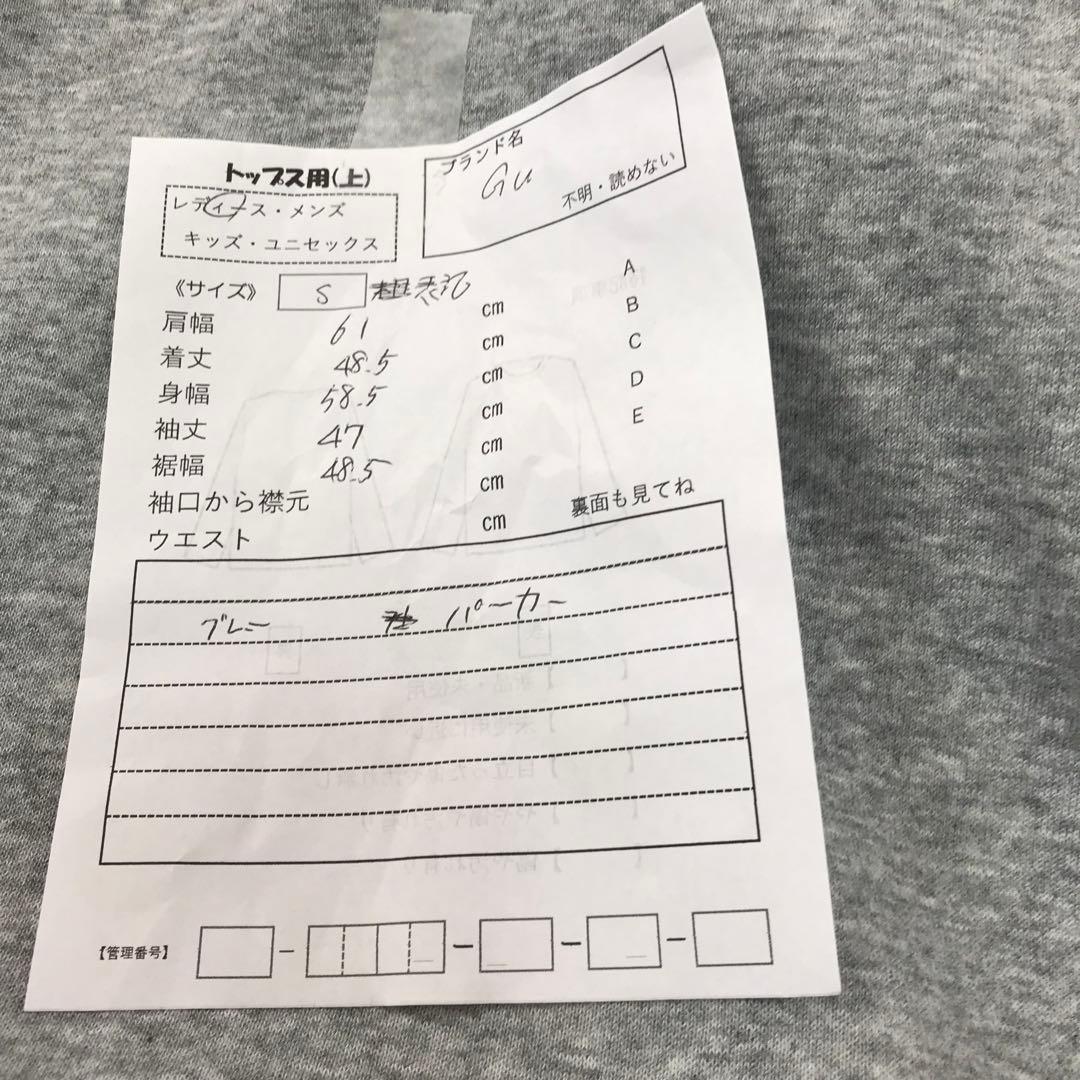 トップス用(上)
レディース・メンズ
キッズ・ユニセックス
ブランド名
GU
不明・読めない
《サイズ》 S 表記
肩幅 61 cm
着丈 48.5 cm
身幅 58.5 cm
袖丈 47 cm
裾幅 48.5 cm
袖口から襟元 cm
ウエスト cm
A
B
C
D
E
裏面も見てね
グレー パーカー
【管理番号】